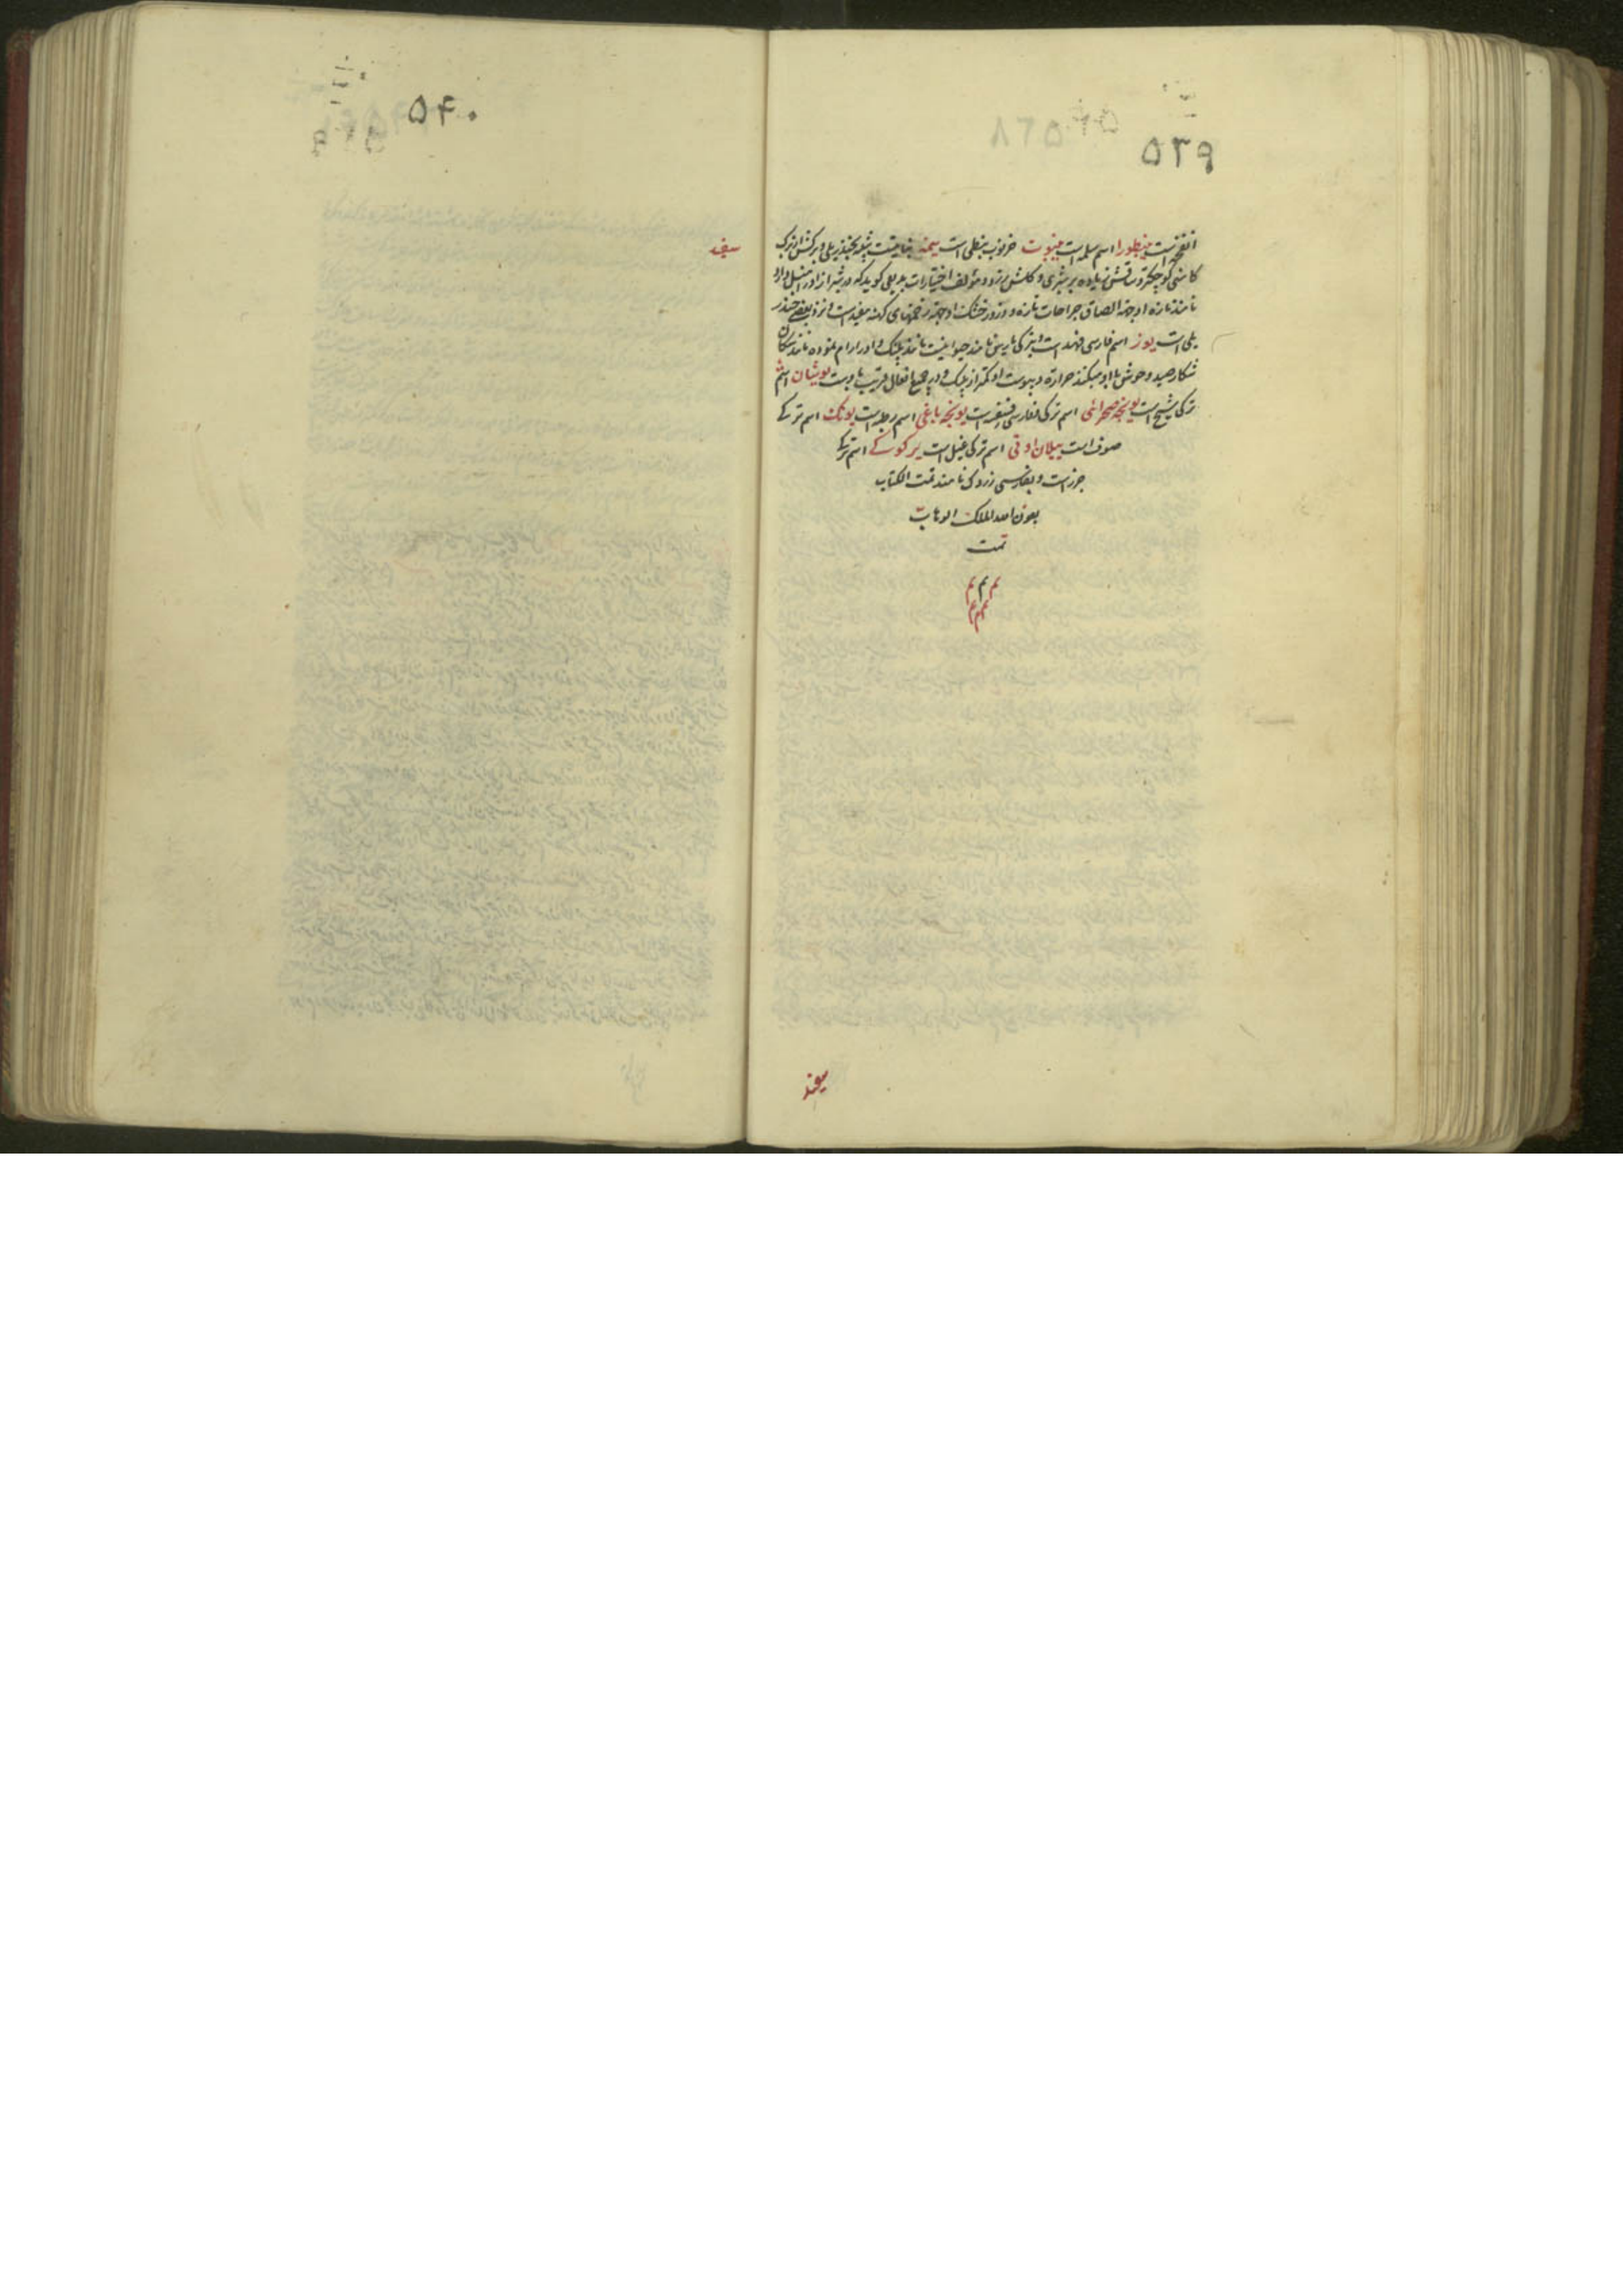 ۵۳۹
انفحه است ینطورا اسم سلمه است ینبوت خرنوب نبطی است یمنه نباتیست شبیه بخندریلی و برکش از برک
کاسنی کوچکتر و ساقش زیاده بر شبری و کلش زرد و مؤلف اختیارات بدیعی کوید که در شیراز او را
نامند تازه او جهة الصاق جراحات تازه و ذرور خشک او جهة زخمهای کهنه مفید است و نزد بعضی خندر
یلی است یوز اسم فارسی فهد است و بترکی بارس نامند حیوانیست مانند پلنک و او را رام نموده مانند سکان
شکار صید وحوش با او میکنند حرارة و یبوست او کمتر از پلنک و در جمیع افعال قریب باوست یوشان اسم
ترکی شیح است یونجه صحرائی اسم ترکی است یونجه باغی اسم رطبه است یونک اسم ترکی
صوف است ییلان اوتی اسم ترکی است یر کوکی اسم ترکی
جزر است و بفارسی زردک نامند تمت الکتاب
بعون الله الملک الوهاب
تمت
م م م
م م
م
۵۴۰